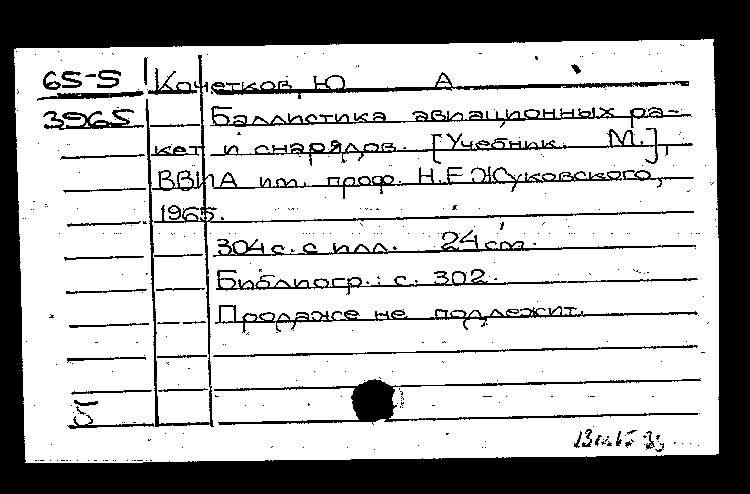 65-5 Кочетков, Ю А
3965 Баллистика авиационных ра-
кет и снарядов. [Учебник. М.],
ВВИА им. проф. Н.Е Жуковского,
1965.
304 с. с илл. 24 см.
Библиогр.: с. 302.
Продаже не подлежит.
Б